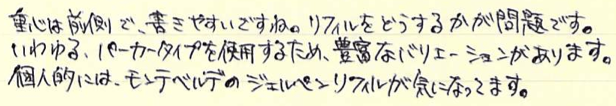 重心は前側で、書きやすいですね。リフィルをどうするかが問題です。
いわゆる、パーカータイプを使用するため、豊富なバリエーションがあります。
個人的には、モンテベルデのジェルペンリフィルが気になってます。